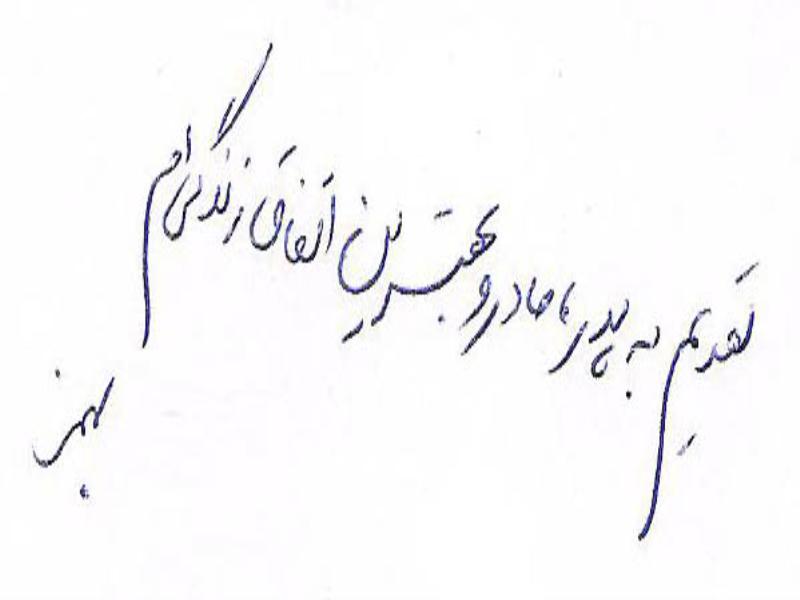 تقدیم به پدر، مادر و بهترین اتفاق زندگی ام